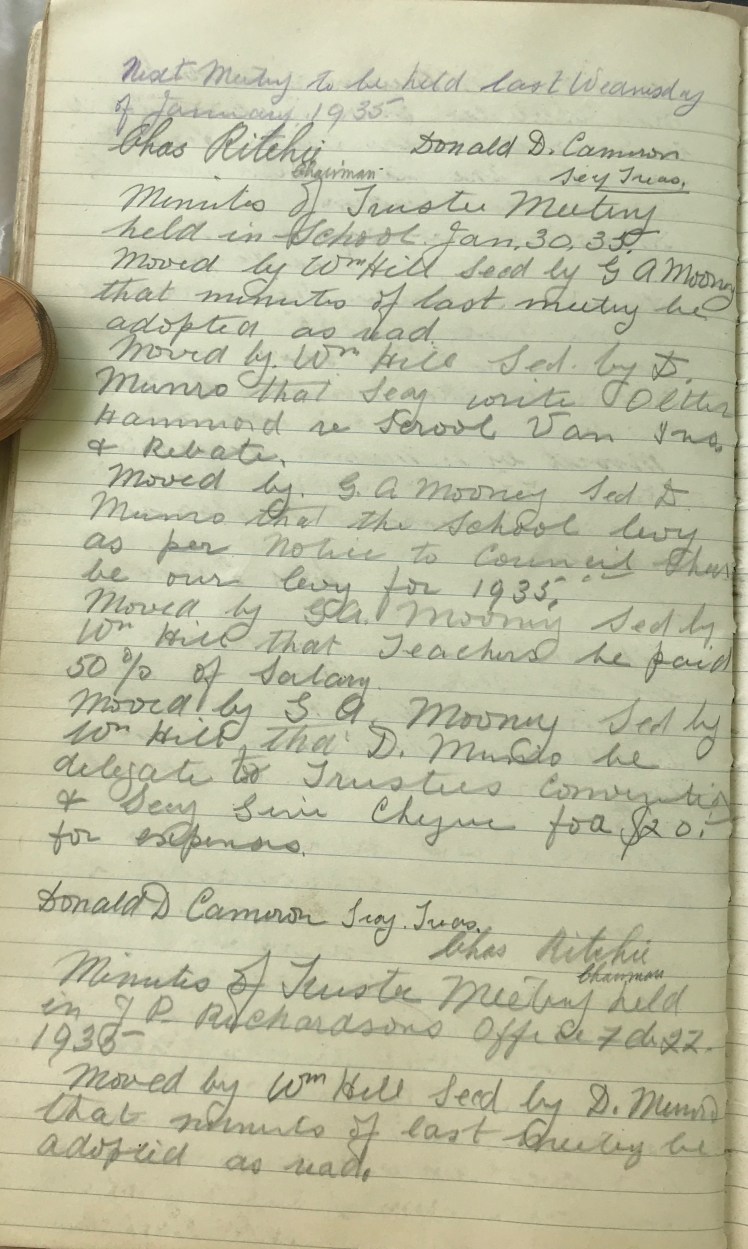 Next Meeting to be held last Wednesday
of January 1935
Chas Ritchie Donald D. Cameron
Chairman Secy Treas.
Minutes of Trustee Meeting
held in School Jan, 30, 35
Moved by Wm Hill Secd by G A Mooney
that minutes of last meeting be
adopted as read.
Moved by. Wm Hill Sed. by D.
Munro that Secy write
Hammond re School Van Ins.
& Rebate.
Moved by. G. A Mooney Sed D.
Munro that the School levy
as per Notice to Council
be our levy for 1935.
Moved by G. A. Mooney Sed by
Wm Hill that Teachers be paid
50% of Salary.
Moved by G. A. Mooney Sed by
Wm Hill, that D. Munro be
delegate to Trustees Convention
& Secy Cheque for $20.
for expenses.
Donald D Cameron Secy. Treas.
Chas Ritchie
Chairman
Minutes of Trustee Meeting held
in J P. Richardsons Office 27.
1935
Moved by Wm Hill Secd by D. Munro
that minutes of last meeting be
adopted as read.